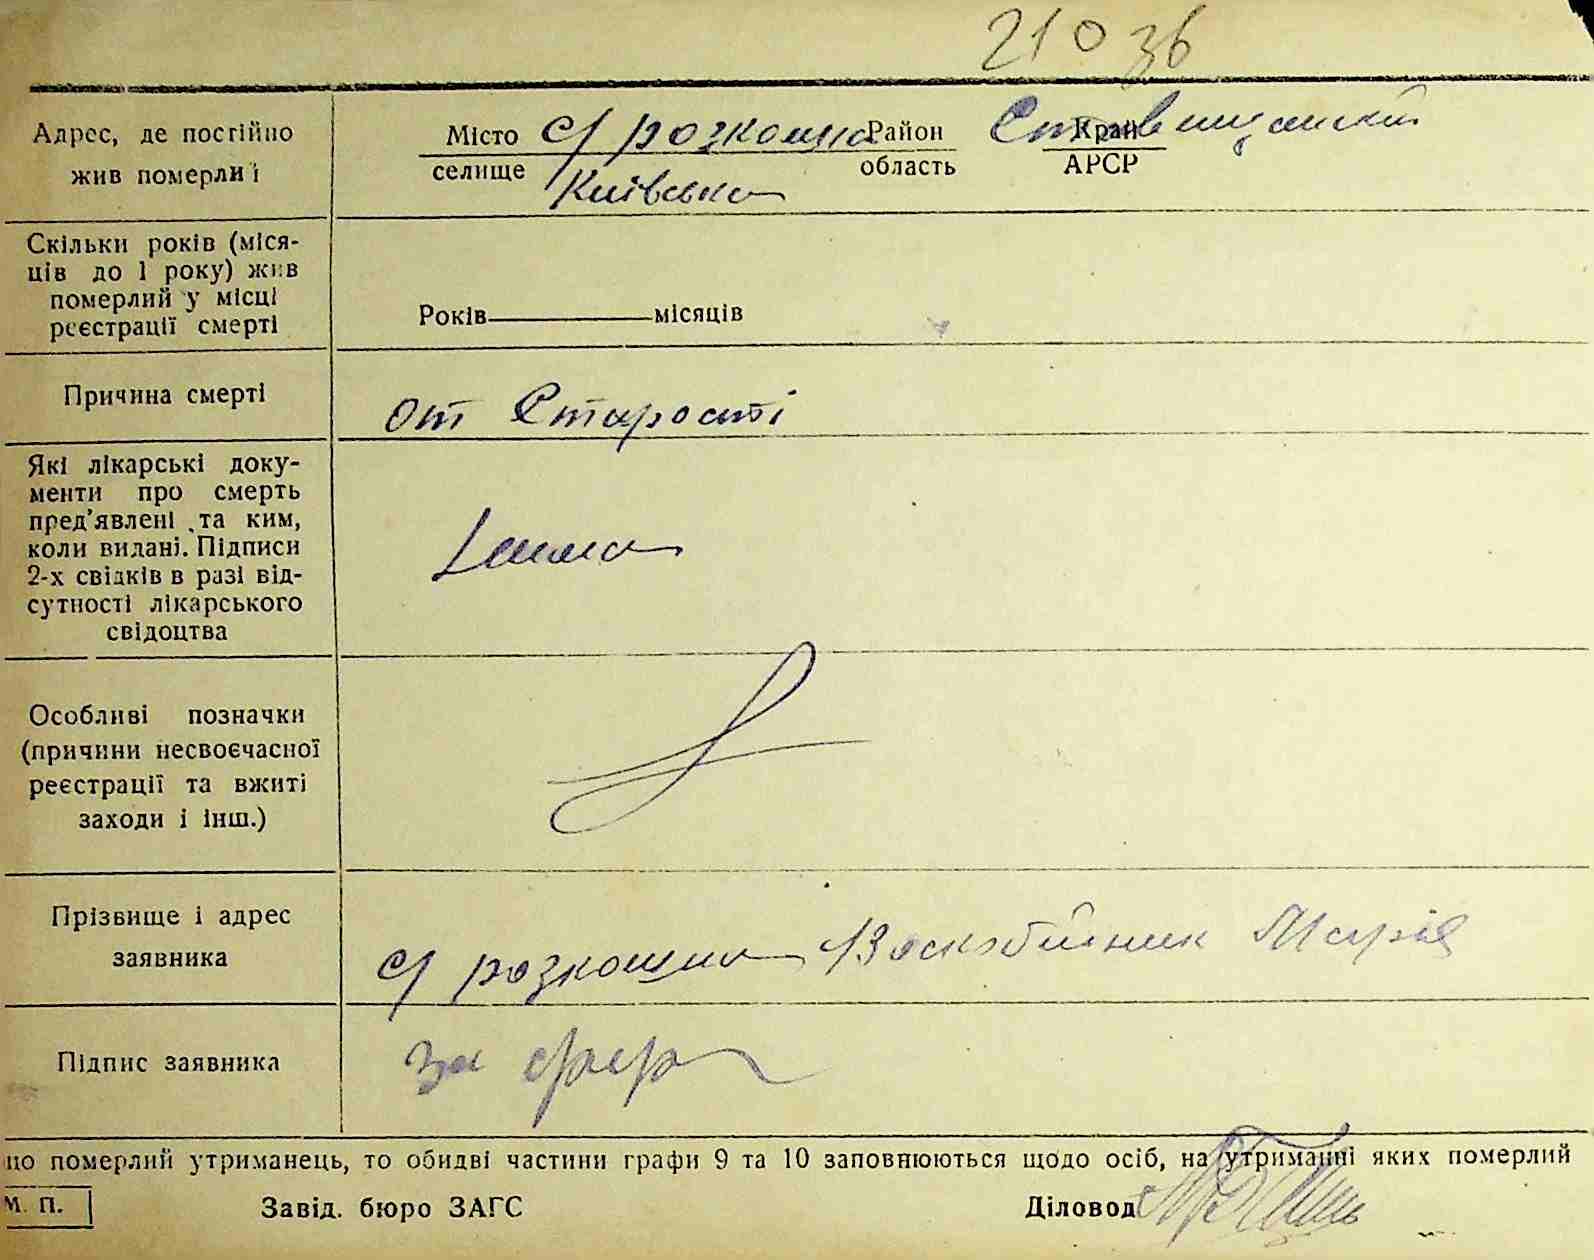 210 зв
Адрес, де постійно
жив померлиї
Місто с/ розкошна Район Ставищанский Край
селище Київська область АРСР
Скільки років (міся-
ців до 1 року) жив
померлий у місці
реєстрації смерті
Років місяців
Причина смерті
от Старости
Які лікарські доку-
менти про смерть
пред’явлені та ким,
коли видані. Підписи
2-х свідків в разі від-
сутності лікарського
свідоцтва
Особливі позначки
(причини несвоєчасної
реєстрації та вжиті
заходи і інш.)
Прізвище і адрес
заявника
с/ розкошна Воскобійник Марія
Підпис заявника
за
що померлий утриманець, то обидві частини графи 9 та 10 заповнюються щодо осіб, на утриманні яких померлий
М. П. Завід. бюро ЗАГС Діловод